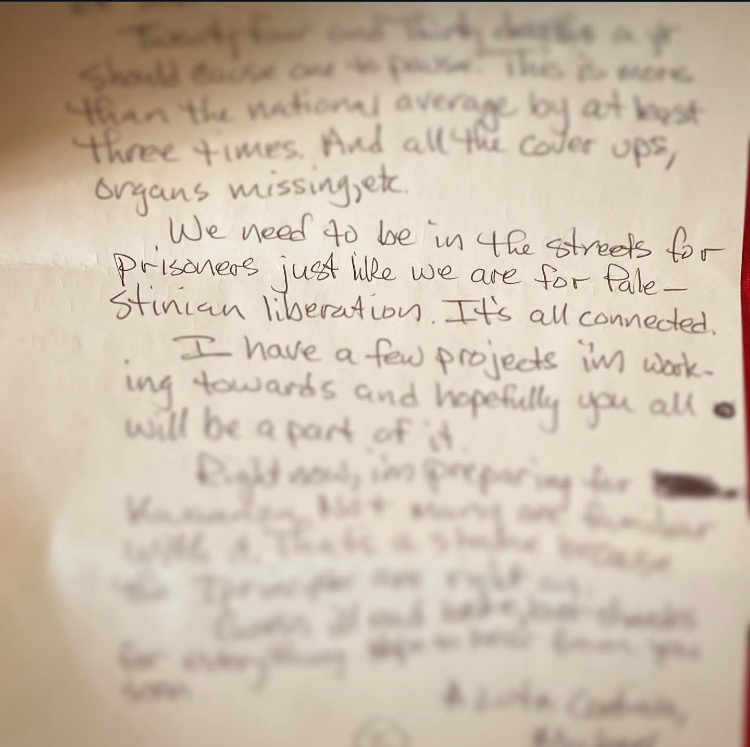 Twenty four and thirty deaths a yr
should cause one to pause. This is more
than the national average by at least
three times. And all the cover ups,
organs missing, etc.
We need to be in the streets for
prisoners just like we are for Pale-
stinian liberation. It's all connected.
I have a few projects im work-
ing towards and hopefully you all
will be a part of it.
Right now, im preparing for
Kwanzaa. Not many are familiar
with it. That's a shame because
the 7 principles are right on.
for everything hope to hear from you
soon.
A Luta Continua,